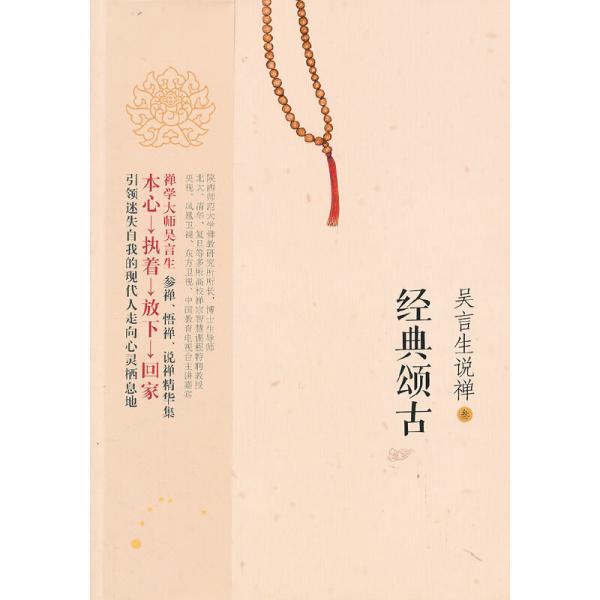 吴言生说禅
叁
经典颂古
陕西师范大学佛教研究所所长，博士生导师
北大、清华、复旦等多所高校禅宗智慧课程特聘教授
央视、凤凰卫视、东方卫视、中国教育电视台主讲嘉宾
禅学大师吴言生 参禅、悟禅、说禅精华集
本心→执着→放下→回家
引领迷失自我的现代人走向心灵栖息地